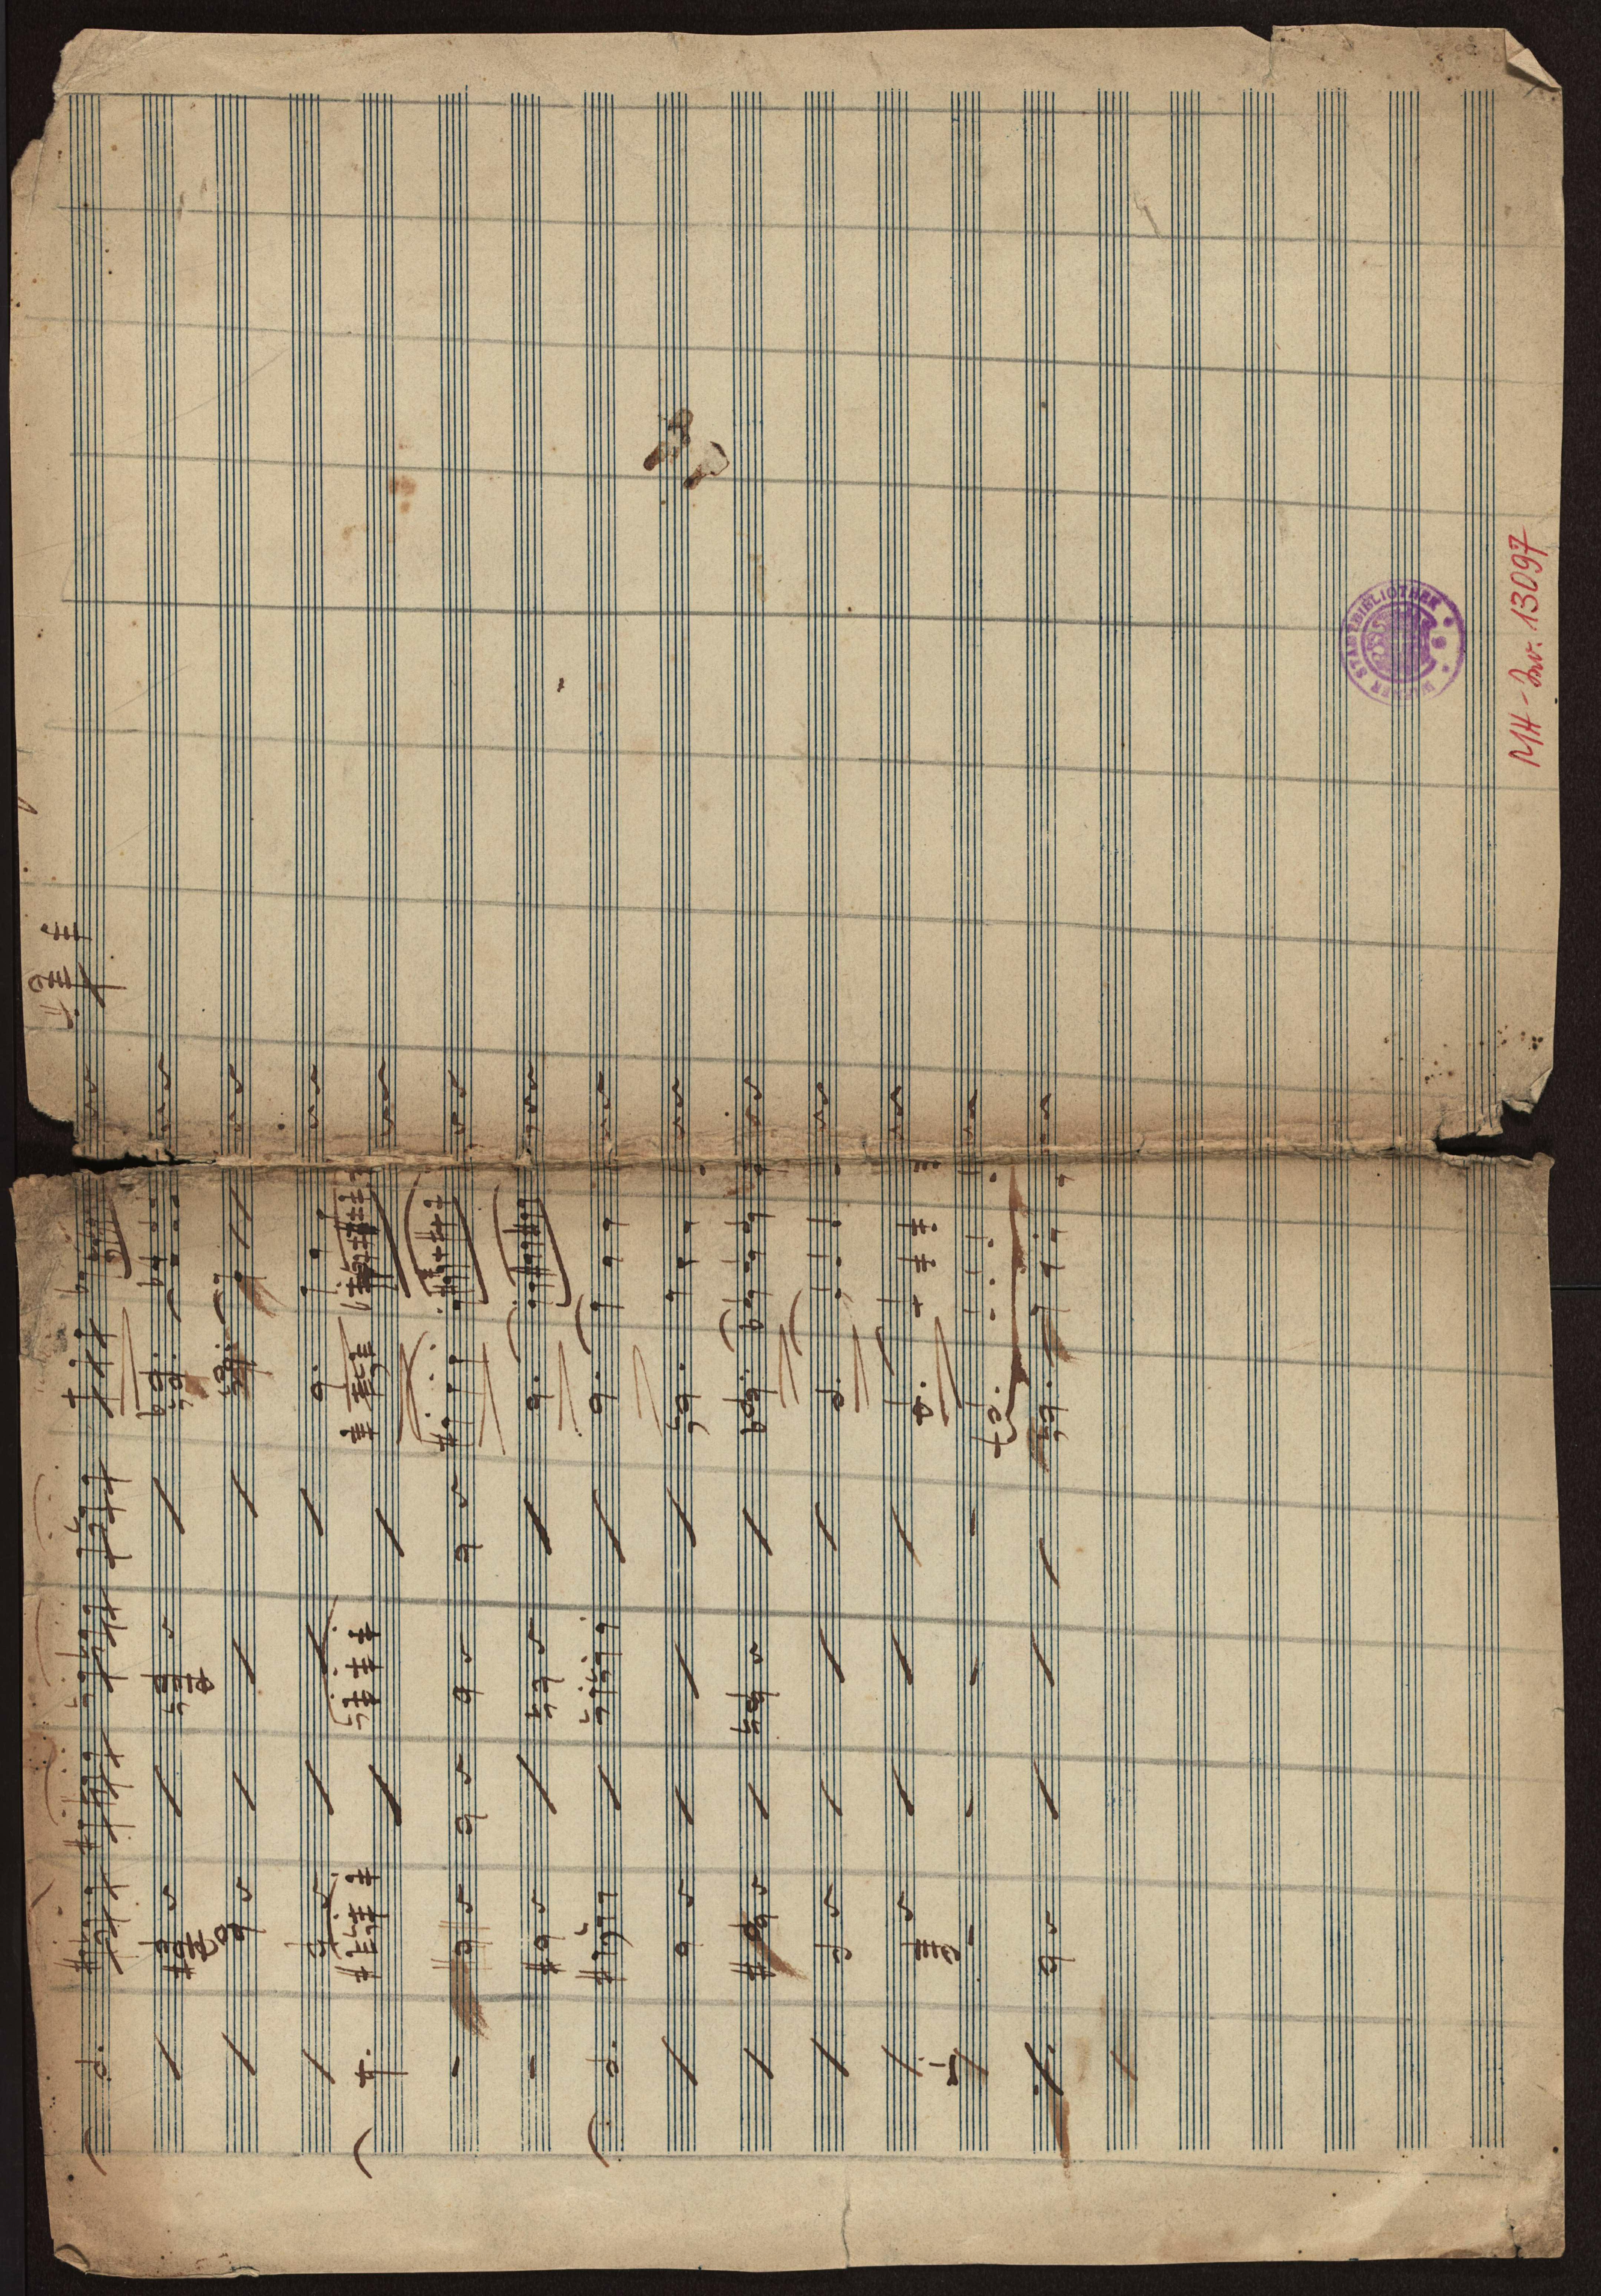 MH-Inv. 13097
WIENER STADTBIBLIOTHEK